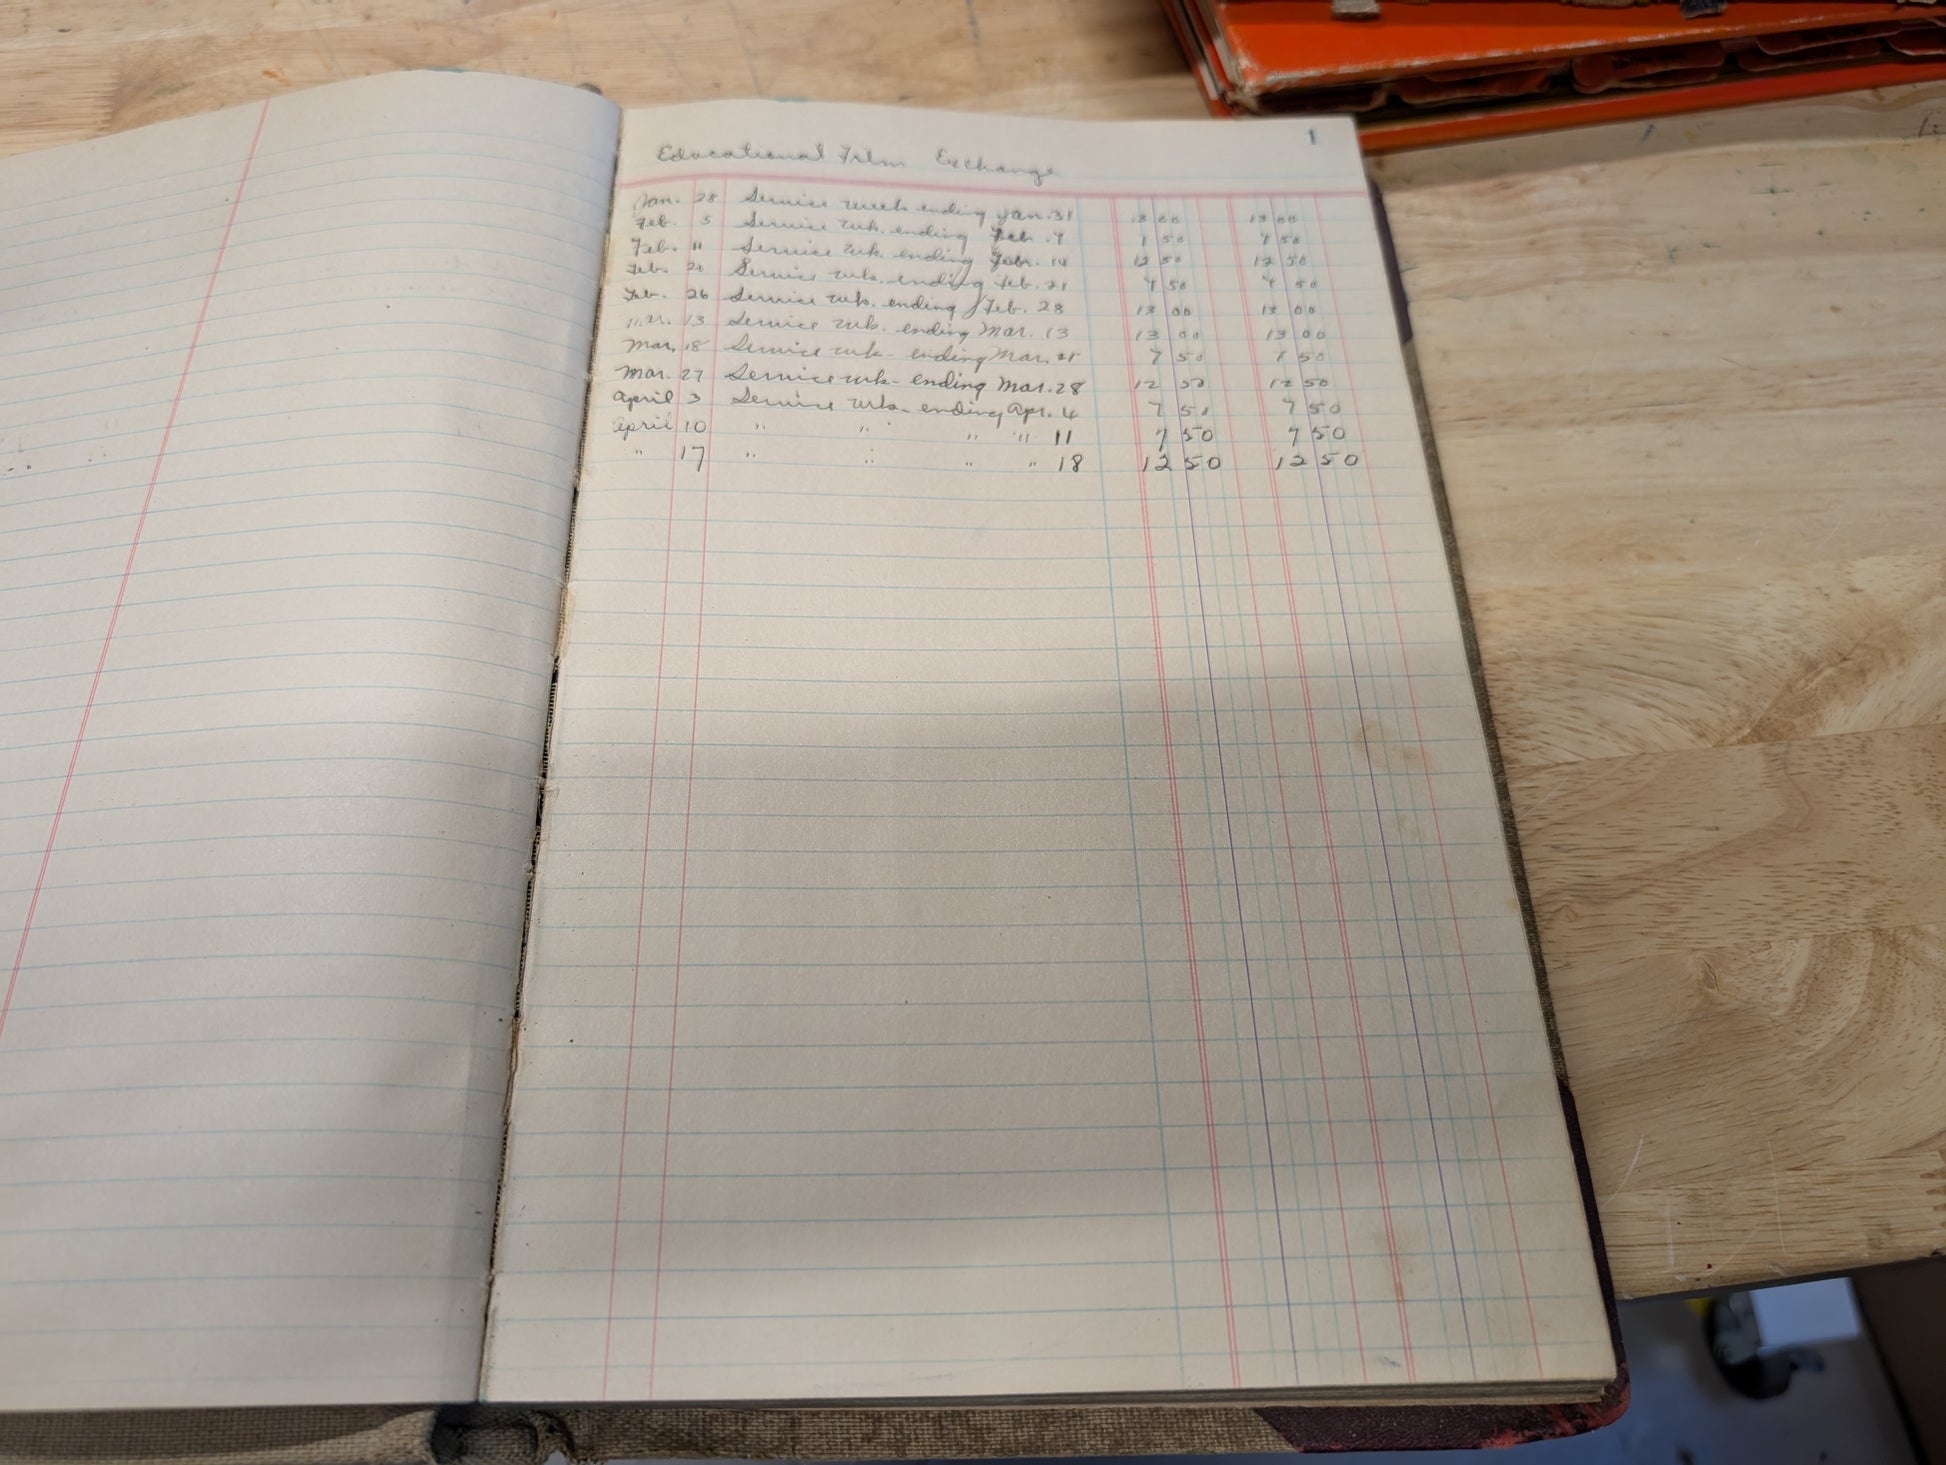 1
Educational Film Exchange
Jan. 28 Service week ending Jan. 31 13 00 13 00
Feb. 5 Service wk. ending Feb. 7 7 50 7 50
Feb. 11 Service wk. ending Feb. 14 12 50 12 50
Feb. 20 Service wk. ending Feb. 21 7 50 7 50
Feb. 26 Service wk. ending Feb. 28 13 00 13 00
Mar. 13 Service wk. ending Mar. 13 13 00 13 00
Mar. 18 Service wk- ending Mar. 21 7 50 7 50
Mar. 27 Service wk- ending Mar. 28 12 50 12 50
April 3 Service wk- ending Apr. 4 7 50 7 50
April 10 " " " " 11 7 50 7 50
" 17 " " " " 18 12 50 12 50